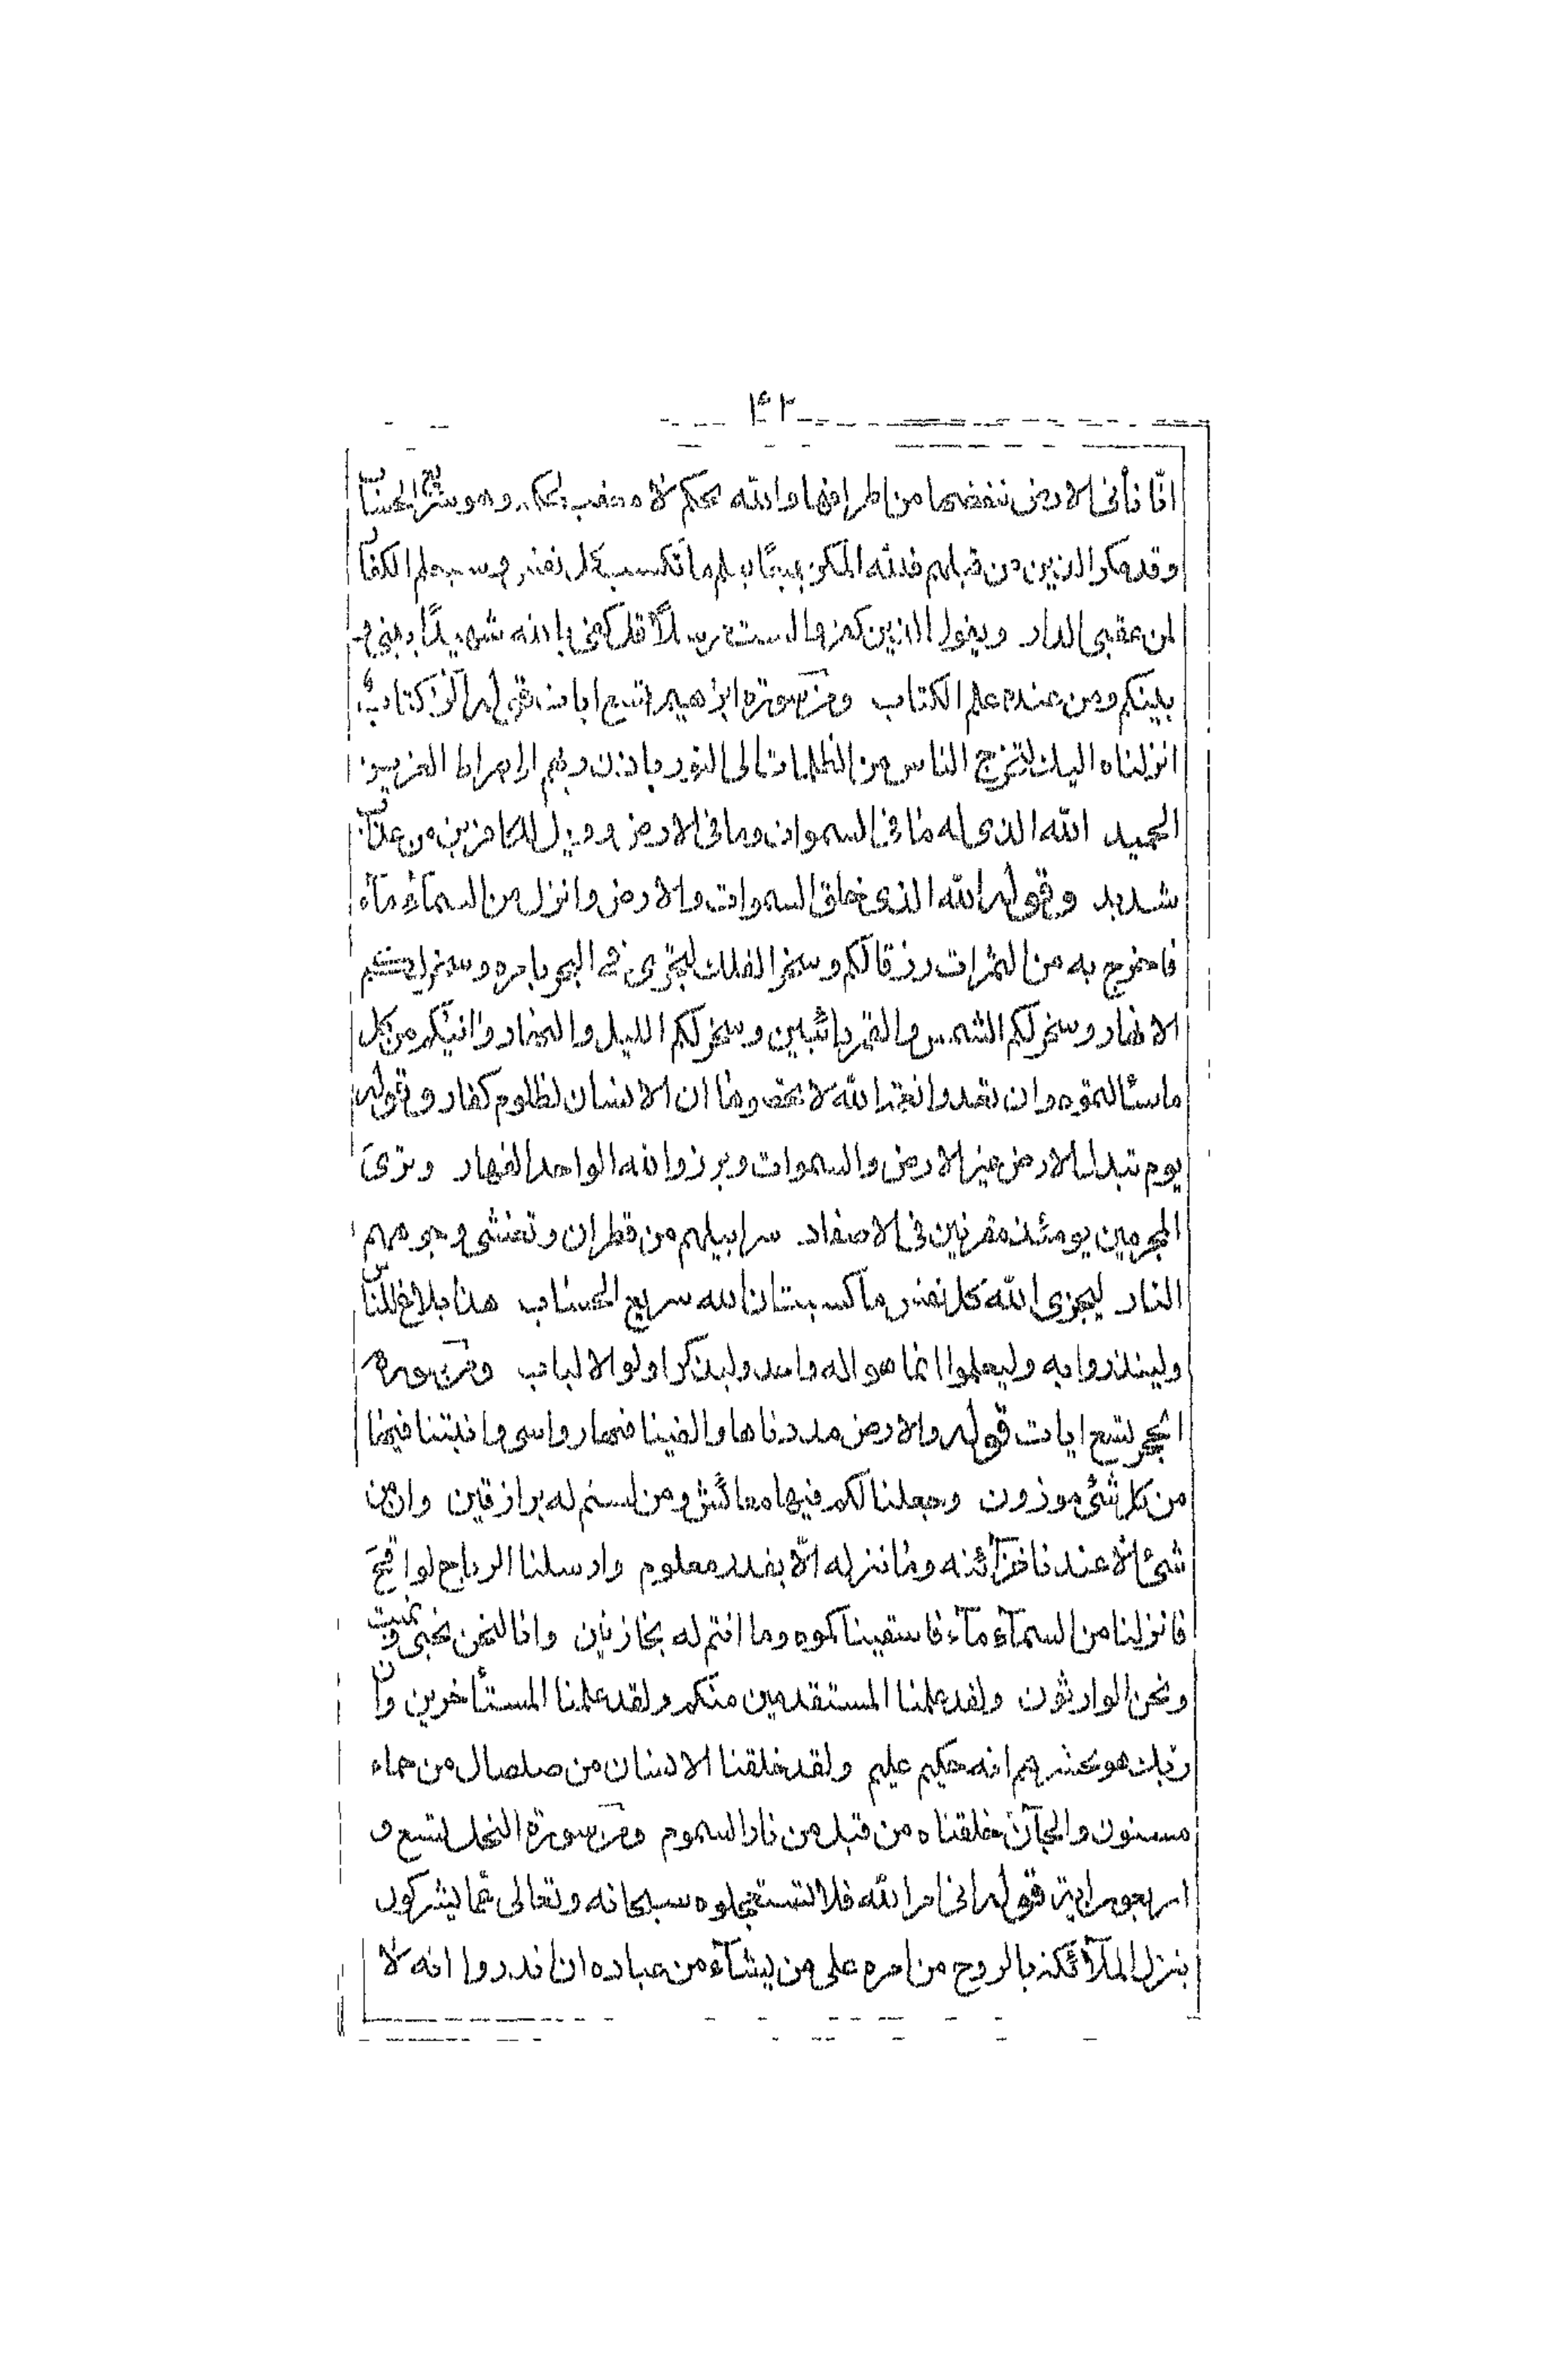 ۱۴۲
انّا نأتى الارض ننقصها من اطرافها والله يحكم لا معقب لحكمه وهو سريع الحساب
وقد مكر الذين من قبلهم فلله المكر جميعًا يعلم ما تكسب كل نفس وسيعلم الكفار
لمن عقبى الدار ويقول الذين كفروا لست مرسلًا قل كفى بالله شهيدًا بينى و
بينكم ومن عنده علم الكتاب ومن سورة ابرهيم تسع ايات قوله الر كتابٌ
انزلناه اليك لتخرج الناس من الظلمات الى النور باذن ربهم الى صراط العزيز
الحميد الله الذى له ما فى السموات وما فى الارض وويل للكافرين من عذاب
شديد وقوله الله الذى خلق السموات والارض وانزل من السمآء مآء
فاخرج به من الثمرات رزقا لكم وسخر الفلك لتجرى فى البحر بامره وسخر لكم
الانهار وسخر لكم الشمس والقمر دائبين وسخر لكم الليل والنهار واتيكم من كل
ما سئالتموه وان تعدوا نعمة الله لا تحصوها ان الانسان لظلوم كفار وقوله
يوم تبدل الارض غير الارض والسموات وبرزوا لله الواحد القهار وترىَ
المجرمين يومئذ مقرنين فى الاصفاد سرابيلهم من قطران وتغشى وجوههم
النار ليجزى الله كل نفس ما كسبت ان الله سريع الحساب هذا بلاغ للناس
ولينذروا به وليعلموا انما هو اله واحد وليذكر اولو الالباب ومن سورة
الحجر تسع ايات قوله والارض مددناها والقينا فيها رواسى وانبتنا فيها
من كل شئ موزون وجعلنا لكم فيها معائش ومن لستم له برازقين وان من
شئ الّا عندنا خزآئنه وما ننزله الّا بقدر معلوم وارسلنا الرياح لواقحَ
فانزلنا من السمآء مآء فاسقيناكموه وما انتم له بخازنين وانا لنحن نحيى ونميت
ونحن الوارثون ولقد علمنا المستقدمين منكم ولقد علمنا المستأخرين وان
ربّك هو يحشرهم انه حكيم عليم ولقد خلقنا الانسان من صلصال من حماء
مسنون والجآنّ خلقناه من قبل من نار السموم ومن سورة النحل تسع و
اربعون اية قوله اتى امر الله فلا تستعجلوه سبحانه وتعالى عمّا يشركون
ينزل الملآئكة بالروح من امره على من يشآء من عباده ان انذروا انه لا